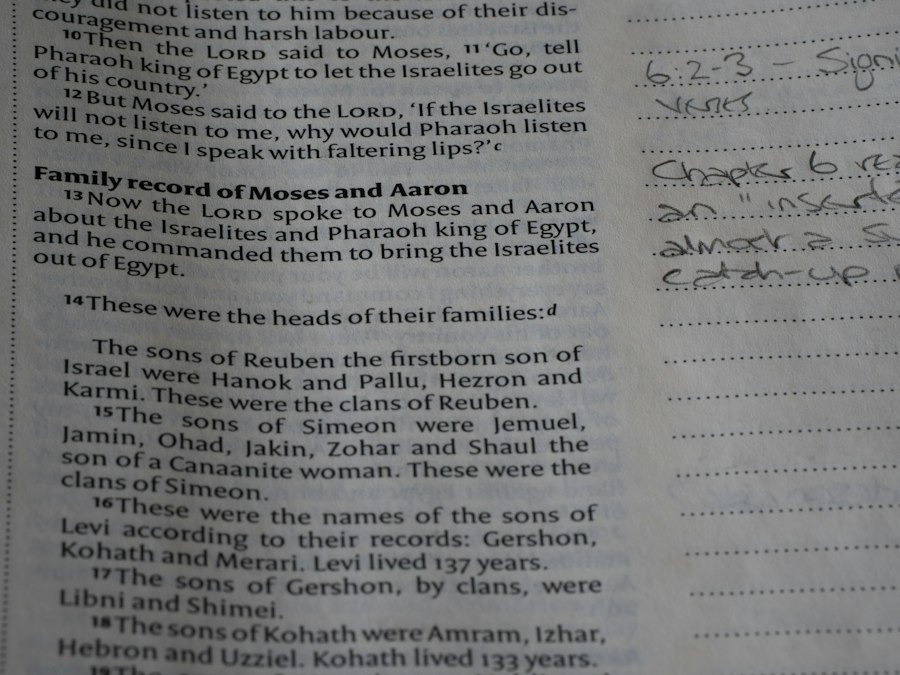 they did not listen to him because of their dis-
couragement and harsh labour.
10 Then the LORD said to Moses, 11 ‘Go, tell
Pharaoh king of Egypt to let the Israelites go out
of his country.’
12 But Moses said to the LORD, ‘If the Israelites
will not listen to me, why would Pharaoh listen
to me, since I speak with faltering lips?’ c
Family record of Moses and Aaron
13 Now the LORD spoke to Moses and Aaron
about the Israelites and Pharaoh king of Egypt,
and he commanded them to bring the Israelites
out of Egypt.
14 These were the heads of their families: d
The sons of Reuben the firstborn son of
Israel were Hanok and Pallu, Hezron and
Karmi. These were the clans of Reuben.
15 The sons of Simeon were Jemuel,
Jamin, Ohad, Jakin, Zohar and Shaul the
son of a Canaanite woman. These were the
clans of Simeon.
16 These were the names of the sons of
Levi according to their records: Gershon,
Kohath and Merari. Levi lived 137 years.
17 The sons of Gershon, by clans, were
Libni and Shimei.
18 The sons of Kohath were Amram, Izhar,
Hebron and Uzziel. Kohath lived 133 years.
6:2-3 – Signi
verses
Chapter 6 rea
an "inserte
almost a su
catch-up